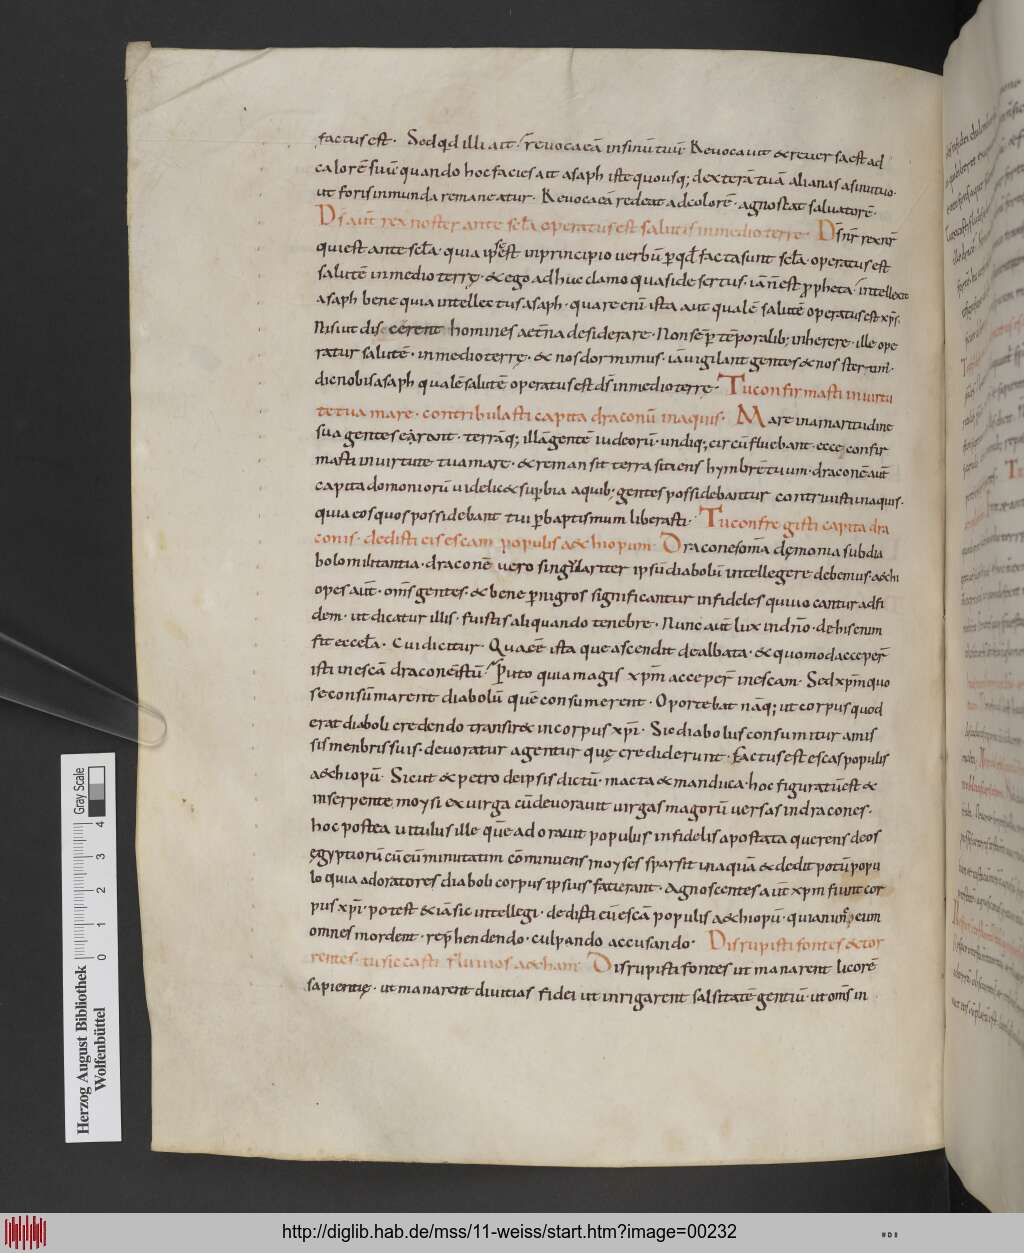 factus est. Sed qd illi ait. revoca eā in sinū tuū. Revocavit & reversa est ad
calorē suū quando hoc facies ait asaph iste quousq; dexterā tuā alienas a sinu tuo.
ut foris inmunda remaneatur. Revoca eā redeat ad colorē. agnoscat salvatorē.
Ds aut rex noster ante scła operatus est salutis in medio terre. Ds nr rex nr
qui est ante scła. quia ipse est in principio verbū p qd facta sunt scła. operatus est
salutē in medio terrę. & ego adhuc clamo quasi desertus. iā ñ est ppheta. intellexit
asaph bene quia intellectus asaph. quare enī ista aut qualē salutē operatus est xps.
Nisi ut disceerent homines aetna desiderare. Non sēp tēporalib; inherere. ille ope
ratur salutē. in medio terrę. & nos dormimus. iā vigilant gentes & nos stertim.
dic nobis asaph qualē salutē operatus est ds in medio terrę. Tu confirmasti in virtu
te tua mare. contribulasti capita draconū in aquis. Mare in amaritudine
sua gentes eārdent. terrāq; illā gentē iudeorū. undiq; circūfluebant. ecce confir
masti in virtute tua mare. & remansit terra sitiens hymbrē tuum. draconē aut
capita domoniorū videlic& supbia a quib; gentes possidebantur contrivisti in aquis.
quia eos quos possidebant tui p baptismum liberasti. Tu confregisti capita dra
conis. dedisti eis escam populis aethiopum. Dracones omā dęmonia sub dia
bolo militantia. draconē vero singulariter ipsū diabolū intellegere debemus. aethi
opes aut. oms gentes. & bene p nigros significantur infideles qui vocantur ad fi
dem. ut dicatur illis. fuistis aliquando tenebre. Nunc aut lux in dno. de his enim
fit eccła. Cui dicitur. Quaeē ista que ascendit dealbata. & quomod acceper
isti in escā draconē istū. Puto quia magis xpm acceper in escam. Sed xpm quo
se consūmarent diabolū quē consumerent. Oportebat nāq; ut corpus quod
erat diaboli credendo transir& in corpus xpi. Sic diabolus consumitur amis
sis menbris suis. devoratur a gentur quę crediderunt. Factus est escas populis
aethiopū. Sicut & petro de ipsis dictū. macta & manduca. hoc figuratū est &
in serpente moysi ex virga cū devoravit virgas magorū versas in dracones.
hoc postea vitulus ille quē adoravit populus infidelis apostata querens deos
ęgyptiorū cū eū minutatim cōminuens moyses sparsit in aquā & dedit potū popu
lo quia adoratores diaboli corpus ipsius facti erant. agnoscentes aut xpm fiunt cor
pus xpi. potest & iā sic intellegi. dedisti eū escā populis aethiopū. quia nunc eum
omnes mordent. rephendendo. culpando accusando. Disrupisti fontes & tor
rentes. tu siccasti fluvios aetham. Disrupisti fontes ut manarent licorē
sapientię. ut manarent divitias fidei ut inrigarent salsitatē gentiū. ut oms in
Herzog August Bibliothek
Wolfenbüttel
0 1 2 3 4
Gray Scale
http://diglib.hab.de/mss/11-weiss/start.htm?image=00232